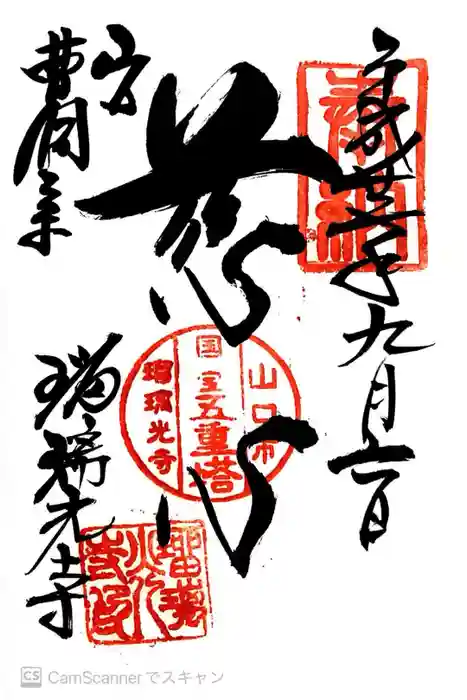 奉拝
平成廿一年九月二日
慈心
山口市
国宝五重塔
瑠璃光寺
曹洞宗
瑠璃光寺
CS CamScannerでスキャン